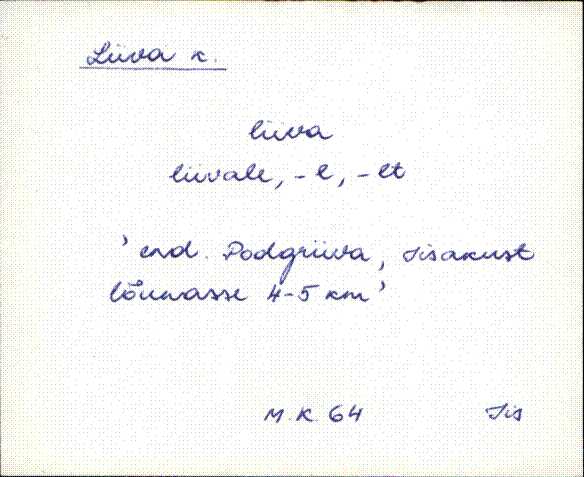 Liiva k.
liiva
liivale, -l, -lt
' end. Podgriiva, Iisakust
lõunasse 4-5 km'
M.K. 64 Iis